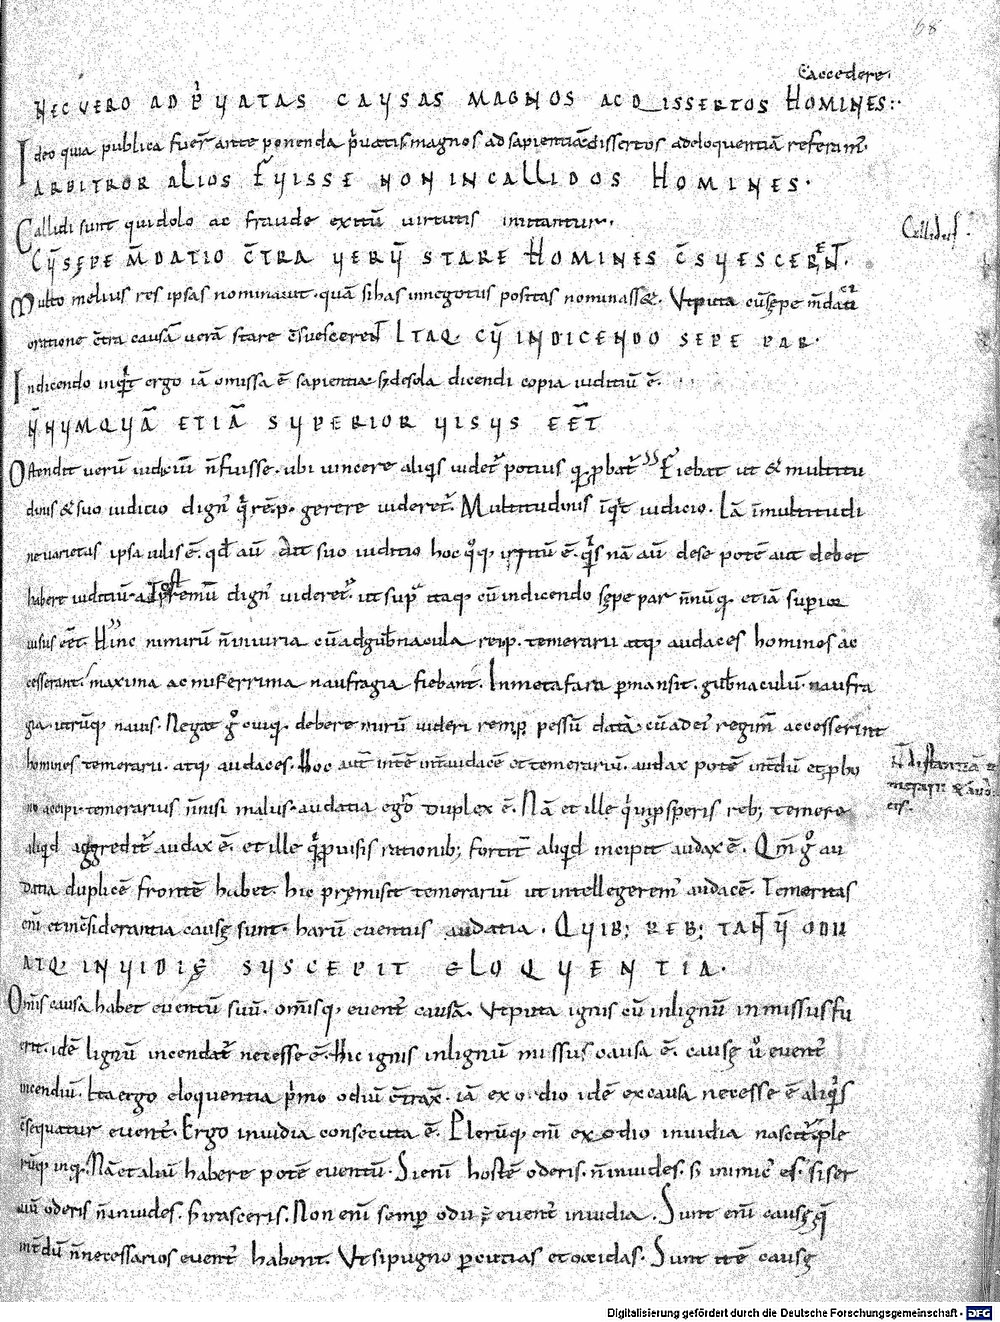 68
& accedere.
NEC VERO AD PͥVATAS CAVSAS MAGNOS AC DISSERTOS HOMINES:·
Ideo quia publica fuer̄ ante ponenda p̍uatis. magnos ad sapientiā. dissertos ad eloquentiā referam̄.
ARBITROR ALIOS FVISSE NON INCALLIDOS HOMINES.
Callidi sunt qui dolo ac fraude exitū uirtutis imitantur.
Callidus.
CV̄ SĘPE M̄DATIO C̄TRA VERV̄ STARE HOMINES C̄SVESCERENT.
Multo melius res ipsas nominauit. quā si has innegotiis positas nominass&. Utputa cū sępe m̄dati
oratione c̄tra causā uerā stare c̄suescerent ITAQ. CV̄ IN DICENDO SEPE PAR.
In dicendo inquit ergo iā omissa ē sapientia. s; de sola dicendi copia iuditiū ē.
N̄NVMQVĀ ETIĀ SVPERIOR VISVS EĒT
Ostendit uerū iudiciū n̄ fuisse. ubi uincere aliq̍s uidet̄ potius q̄ pbat̄. Fiebat ut & multitu
dinis & suo iudicio dign̄ q̍ rēp. gerere uideret̄. Multitudinis inq̍t iudicio. Iā in multitudi
ne uarietas ipsa uilis ē. qd̄ aū dit suo iuditio hoc q̊q. irritū ē. q̍s nā aū de se potē aut debet
habere iuditiū. dign̄ uideret̄. ut sup̄ itaq. cū in dicendo sępe par n̄nūq. etiā superior
uisus eēt. Hinc nimirū n̄ iniuria cū ad gub̄nacula reip. temerarii atq. audaces homines ac
cesserant. maxima ac miserrima naufragia fiebant. In metafara p̄mansit. gub̄naculū naufra
gia. utrūq. nauis. Negat g̊ cuiq. debere mirū uideri remp. pessū datā. cū ad ei' regim̄ accesserint
homines temerarii. atq. audaces. Hoc aut̄ intē int̄ audacē et temerariū. audax potē int̄dū et p bo
no accipi. temerarius n̄nisi malus. audatia ergo duplex ē. Nā et ille q̍ inpsperis reb; temere
aliqd aggredit̄ audax ē. et ille q̍ puisis rationib; fortit̄ aliqd incipit audax ē. Qm̄ g̊ au
datia duplicē frontē habet. hic pręmisit temerariū ut intellegerem' audacē. Temeritas
eni et inc̄siderantia causę sunt. harū euentus audatia. QVIB; REB; TANTV̄ ODII
ATQ. INVIDIĘ SVSCEPIT ELOQVENTIA.
Om̄is causa habet euentū suū. om̄isq. euent' causā. Utputa ignis cū in lignū inmissus fu
erit. idē lignū incendat̄ necesse ē. Hic ignis in lignū missus causa ē. causę ů euent'
incendiū. Ita ergo eloquentia p̍mo odiū c̄trax. iā ex odio idē ex causa necesse ē aliq̍s
c̄sequatur euent'. Ergo inuidia consecuta ē. Plerūq. eni ex odio inuidia nascit̄. ple
rūq. inq. Nā et aliū habere potē euentū. Si eni hostē oderis. n̄ inuides. s; inimic' es. si ser
uū oderis n̄ inuides. s; irasceris. Non eni semp odii euent' inuidia. Sunt eni causę q̄
int̄dū n̄ necessarios euent' habent. Ut si pugno p̄cutias et occidas. Sunt itē causę
Digitalisierung gefördert durch die Deutsche Forschungsgemeinschaft - DFG